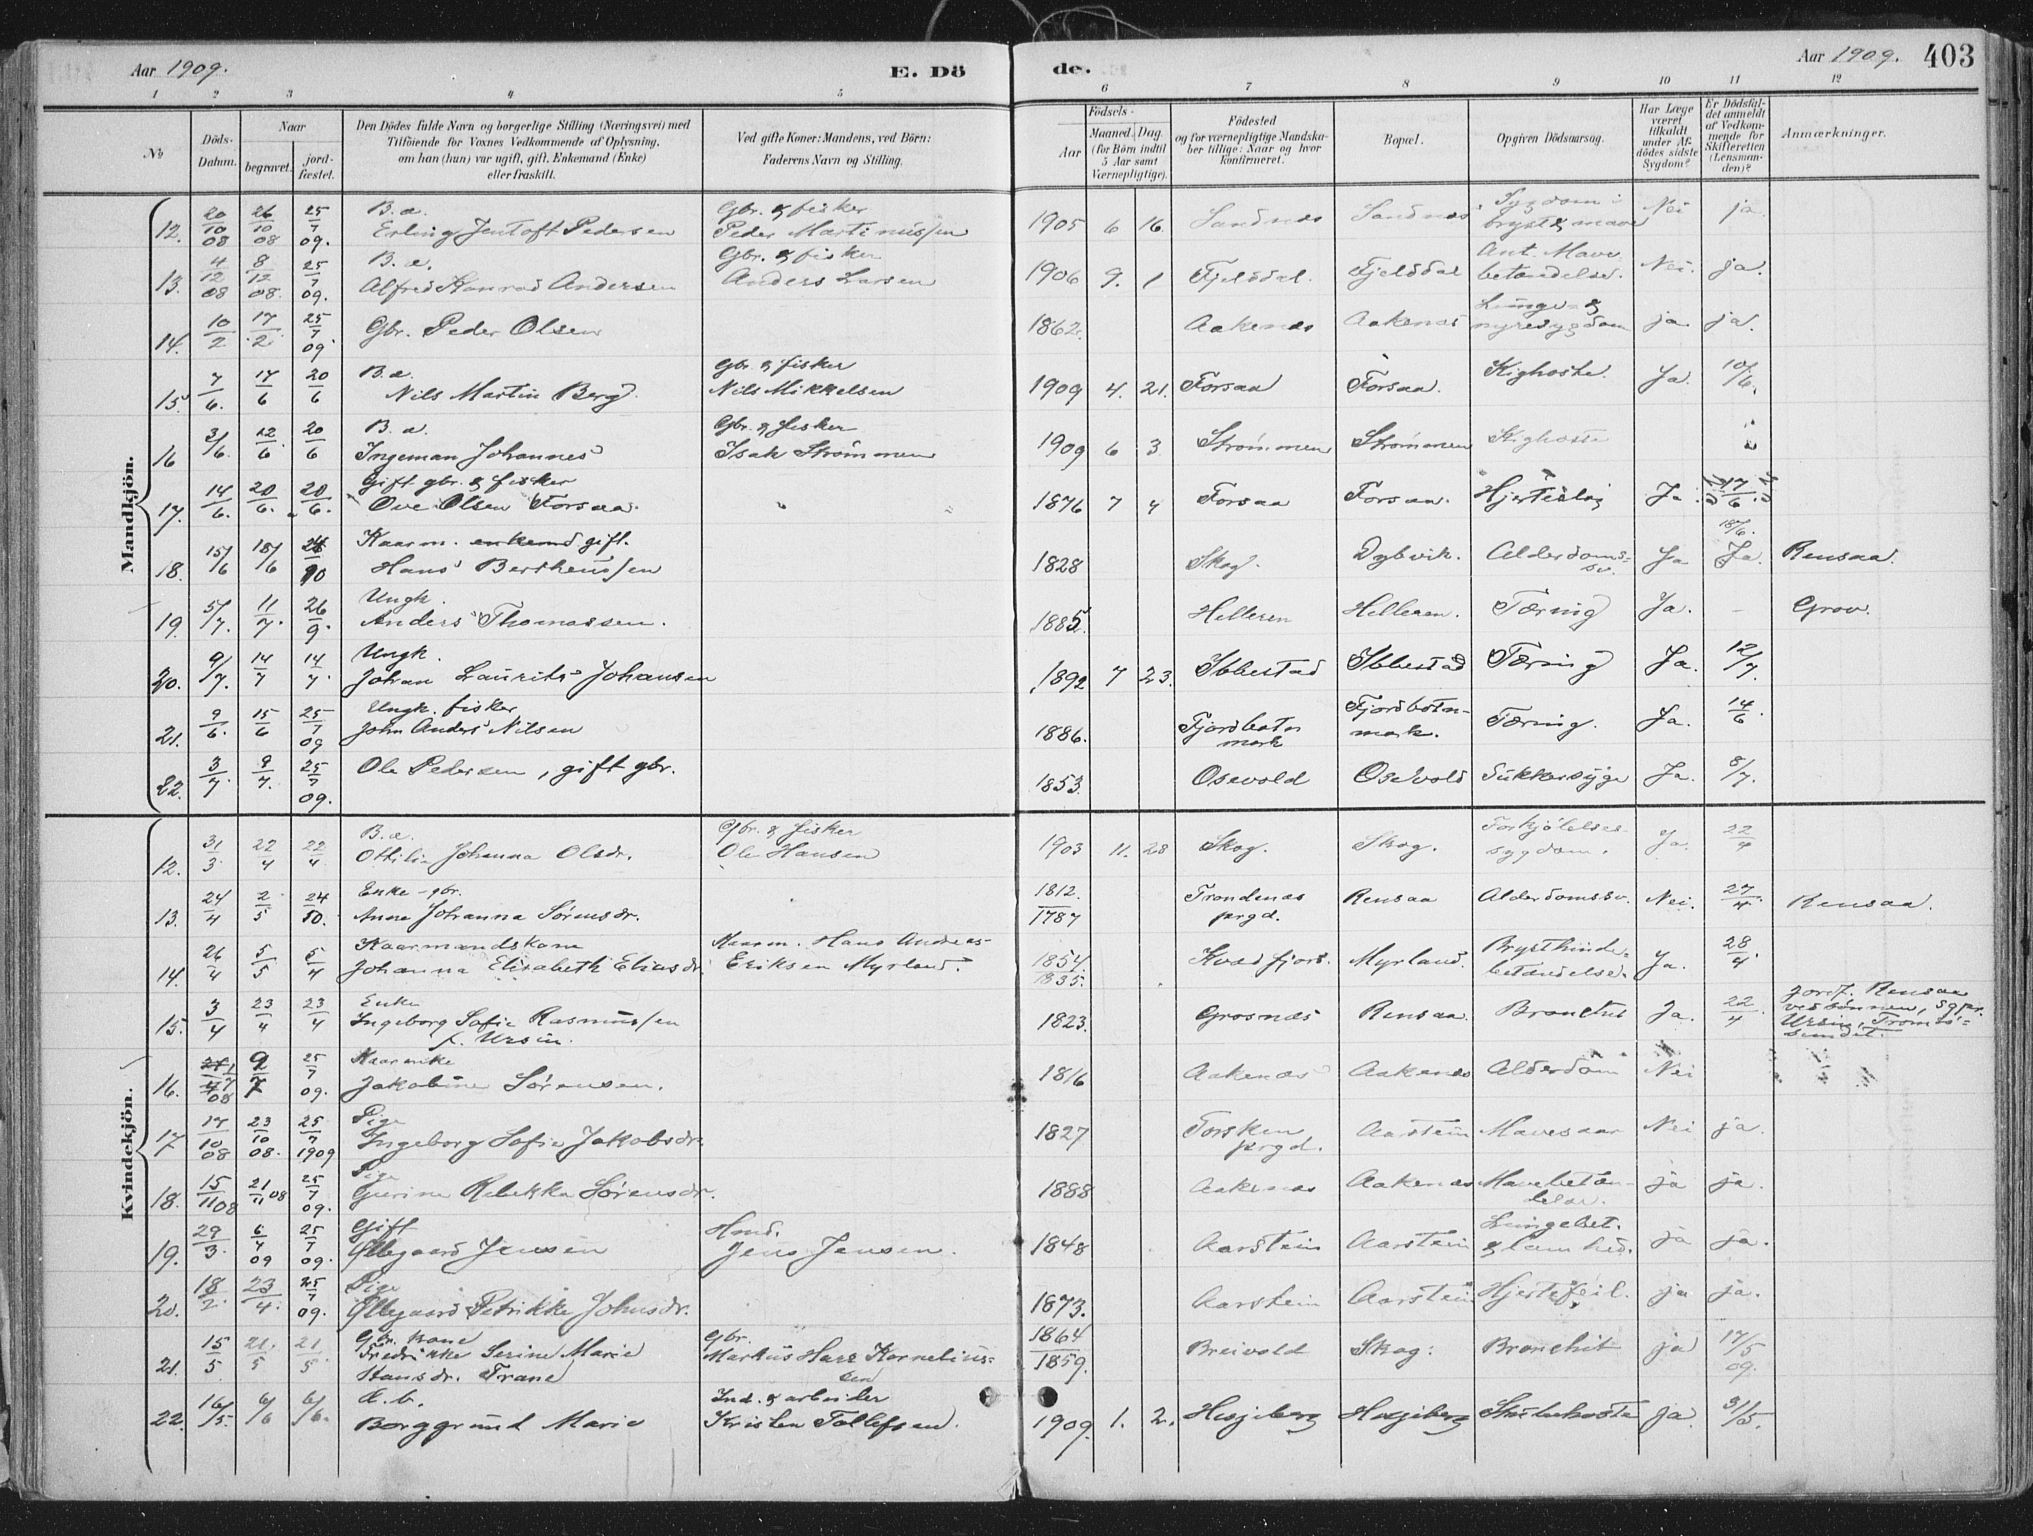 Aar 1909. E. Dö de. Aar 1909. 403
1 2 3 4 5 6 7 8 9 10 11 12
№ Döds-Datum. Naar begravet. jord-fæstet. Den Dödes fulde Navn og borgerlige Stilling (Næringsvei) med Tilföiende for Voxnes Vedkommende af Oplysning, om han (hun) var ugift, gift, Enkemand (Enke) eller fraskilt. Ved gifte Koner: Mandens, ved Börn: Faderens Navn og Stilling. Födsels- Aar Maaned. Dag. (for Börn indtil 5 Aar samt Værnepligtige). Födested og for værnepligtige Mandskaber tillige: Naar og hvor konfirmeret. Bopæl. Opgiven Dödsaarsag. Har Læge været tilkaldt under Afdödes sidste Sygdom? Er Dödsfaldet anmeldt af Vedkommende for Skifteretten (Lensmanden)? Anmærkninger.
Mandkjön.
12. 20/10 08 26/10 08 25/7 09. B. æ. Erling Jentoft Pedersen Gbr. & fisker Peder Martinussen 1905 6 16. Sandnes Sandnes Sygdom i bryst & mave Nei ja.
13. 4/12 08 8/12 08. 25/7 09. B. æ. Alfred Konrad Andersen Gbr. & fisker Anders Larsen 1906 9. 1 Fjelddal. Fjelddal Ant. Mavebetændelse. Nei. ja.
14. 10/2 17/2. 25/7 09. Gbr. Peder Olsen 1862. Aakenes Aakenes Lunge- & nyresygdom ja ja.
15. 7/6. 17/6 20/6 B. æ. Nils Martin Berg. Gbr. & fisker Nils Mikkelsen 1909 4. 21. Forsaa Forsaa. Kighoste. Ja. 10/6.
16 3/6. 12/6. 20/6 B. æ. Ingeman Johannes Gbr. & fisker Isak Strømmen 1909 6 3. Strømmen Strømmen Kighoste
17. 14/6. 20/6. 20/6. Gift gbr. & fisker Ove Olsen Forsaa. 1876 7 4 Forsaa Forsaa. Hjerteslag Ja. 17/6.
18. 15/6 18/6 26/10 Kaarm. enkemd gift. Hans Bertheussen 1828 Skog. Dybvik. Alderdomssv. Ja 18/6. Ja. Rensaa.
19. 5/7. 11/7. 26/9. Ungk. Anders Thomassen. 1885. Helleren Helleren. Tæring Ja. - Grov.
20. 9/7. 14/7 14/7. Ungk. Johan Laurits Johansen 1892 7 23. Ibbestad Ibbestad Tæring Ja. 12/7.
21. 9/6. 15/6 25/7 09 Ungk. fisker John Anders Nilsen 1886. Fjordbotnmark Fjordbotnmark. Tæring. Ja. 14/6.
22. 3/7. 9/7. 25/7 09. Ole Pedersen, gift gbr. 1853. Osevold Osevold Sukkersyge Ja. 8/7.
Kvindekjön.
12. 31/3. 22/4 22/4 B. æ. Ottilie Johanna Olsdr. Gbr. & fisker Ole Hansen 1903 11. 28 Skog. Skog. Forkjølelsessygdom. Ja. 22/4
13. 24/4 2/5 24/10. Enke - gbr. Anne Johanna Sørensdr. 1812. 1787 Trondenes prgd. Rensaa Alderdomssv. Nei. 27/4. Rensaa.
14. 26/4 5/5 5/4 Kaarmandskone Johanna Elisabeth Eliasdr. Kaarm. Hans Andreas Eriksen Myrland. 1854 1835. Kvædfjord. Myrland. Brysthindebetændelse. Ja. 28/4.
15. 3/4 23/4 23/4 Enke Ingeborg Sofie Rasmussen f. Ursin. 1823. Grosnes Rensaa. Bronchit Ja. 22/4 Jordf. Rensaa ved sønnen, sgpr. Ursin, Tromsøsundet.
16. 9/7 25/7 09. Kaarenke Jakobine Sørensen. 1816 Aakenes Aakenes Alderdom Nei
17 17/10 08 23/10 08. 25/7 1909 Pige Ingeborg Sofie Jakobsdr. 1827 Torsken prgd. Aarstein Mavesaar Nei ja.
18. 15/11 08 21/11 08 25/7 09. Pige Gurine Rebekka Sørensdr. 1888 Aakenes Aakenes Mavebetændelse. ja ja.
19. 29/3. 6/4 09 25/7 09. Gift Øllegaard Jensen Hmd. Jens Jensen. 1848 Aarstein Aarstein Lungebet. & lamhed. ja ja.
20. 18/2. 23/4. 25/7 09. Pige Øllegaard Petrikke Johnsdr. 1873. Aarstein Aarstein Hjertefeil. ja ja.
21. 15/5. 21/5 21/5 Gbr. kone Fredrikke Serine Marie Hansdr. Trane Gbr. Markus Hass Korneliussen 1864 1859. Breivold Skog. Bronchit ja 17/5 09.
22. 16/5. 6/6 6/6. æ. b. Borggrund Marie Ind. & arbeider Kristen Tollefsen. 1909. 1. 2. Hesjeberg Hesjeberg Strubehoste ja. 31/5.